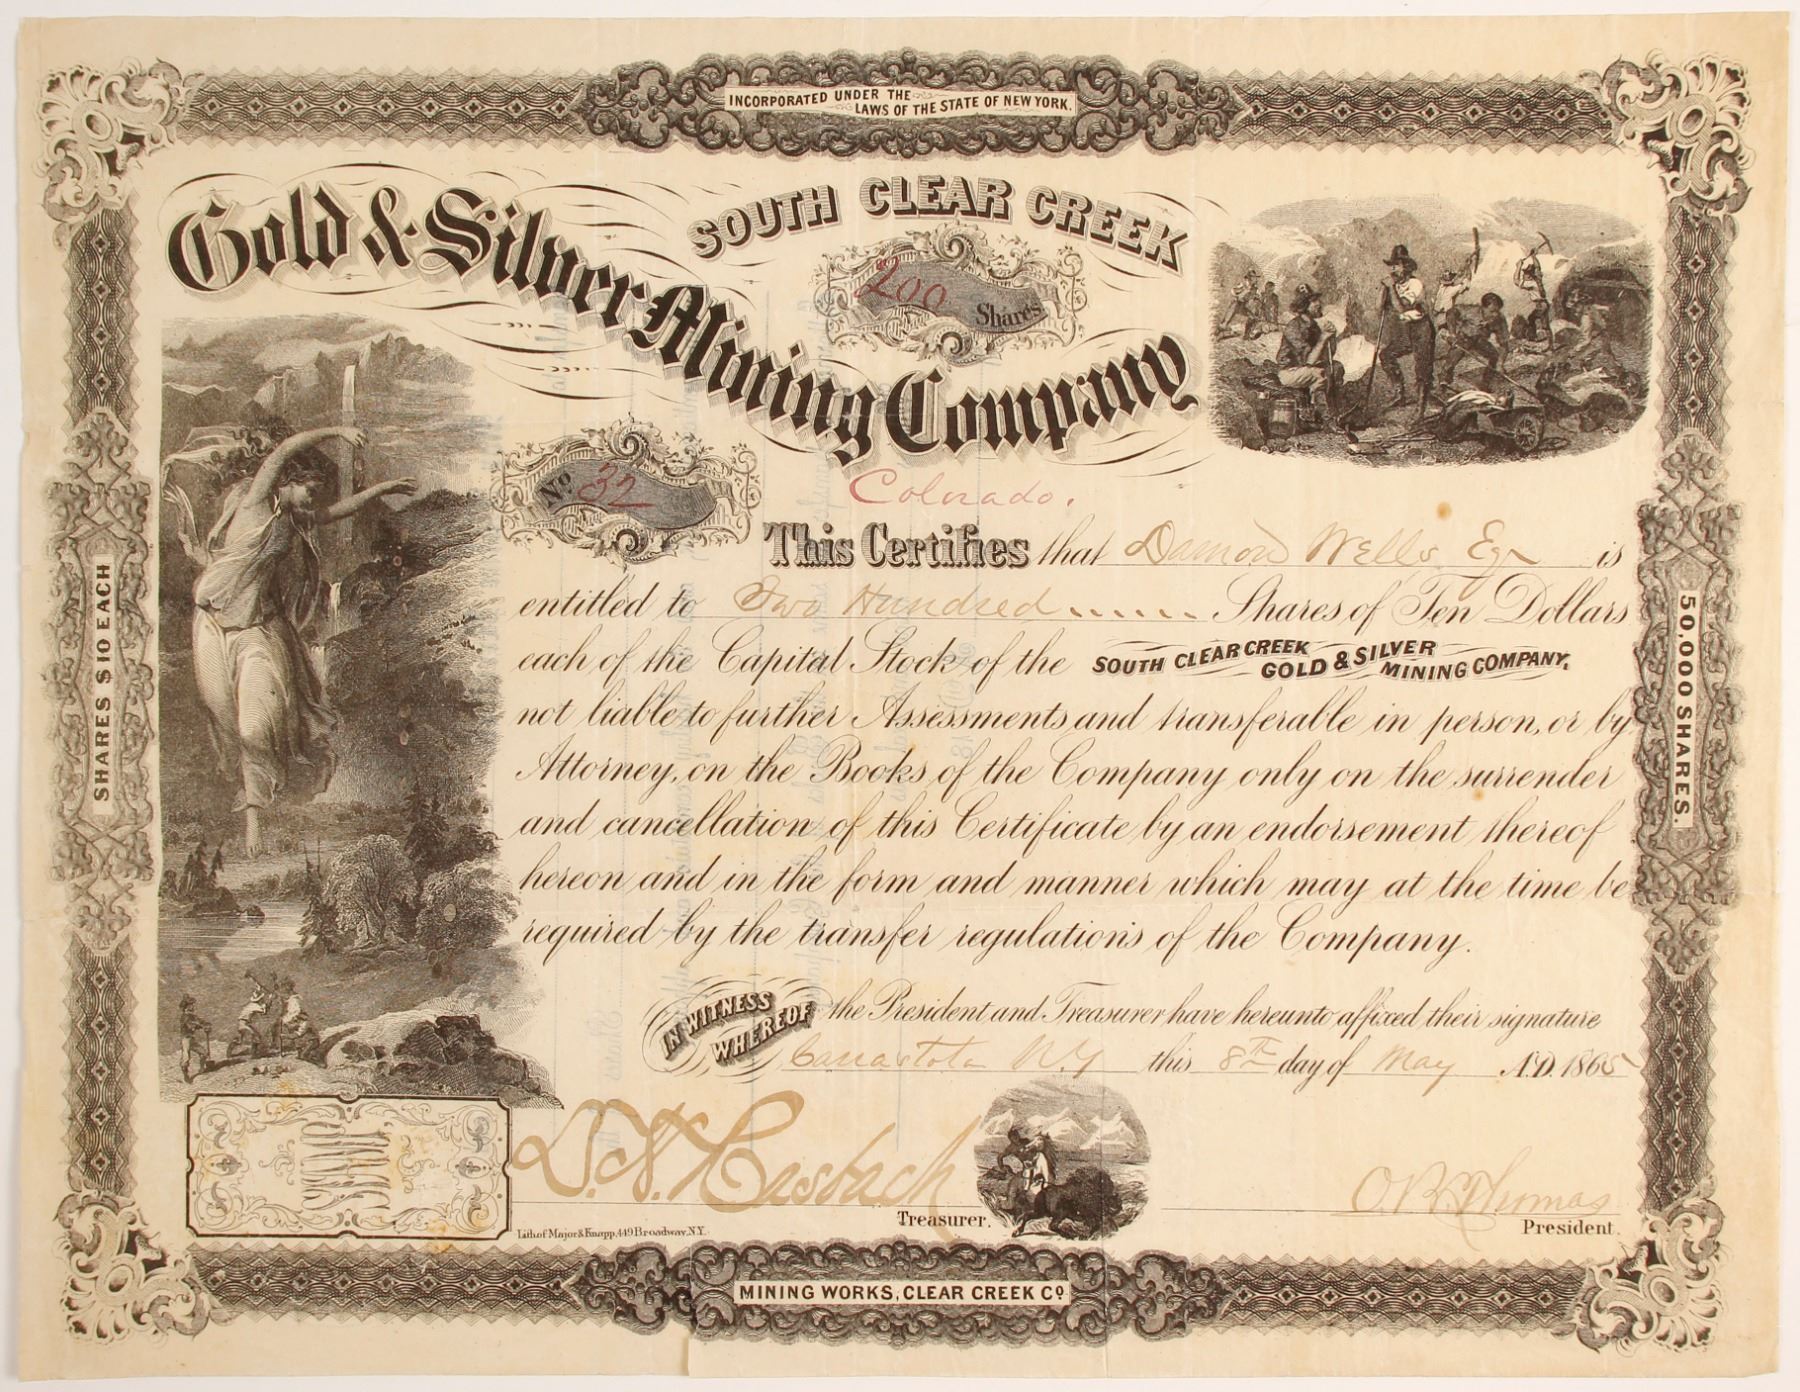 INCORPORATED UNDER THE
LAWS OF THE STATE OF NEW YORK.
SOUTH CLEAR CREEK
Gold & Silver Mining Company
200 Shares
No 32
Colorado.
This Certifies that Damon Wells Esqr is
entitled to Two Hundred Shares of Ten Dollars
each of the Capital Stock of the SOUTH CLEAR CREEK GOLD & SILVER MINING COMPANY,
not liable to further Assessments and transferable in person, or by
Attorney, on the Books of the Company only on the surrender
and cancellation of this Certificate by an endorsement thereof
hereon and in the form and manner which may at the time be
required by the transfer regulations of the Company.
IN WITNESS WHEREOF the President and Treasurer have hereunto affixed their signature
Canastota N.Y this 8th day of May A.D. 1865
Treasurer.
O.B. Thomas
President.
Lith of Major & Knapp, 449 Broadway, N.Y.
SHARES $10 EACH
50,000 SHARES.
MINING WORKS, CLEAR CREEK Co